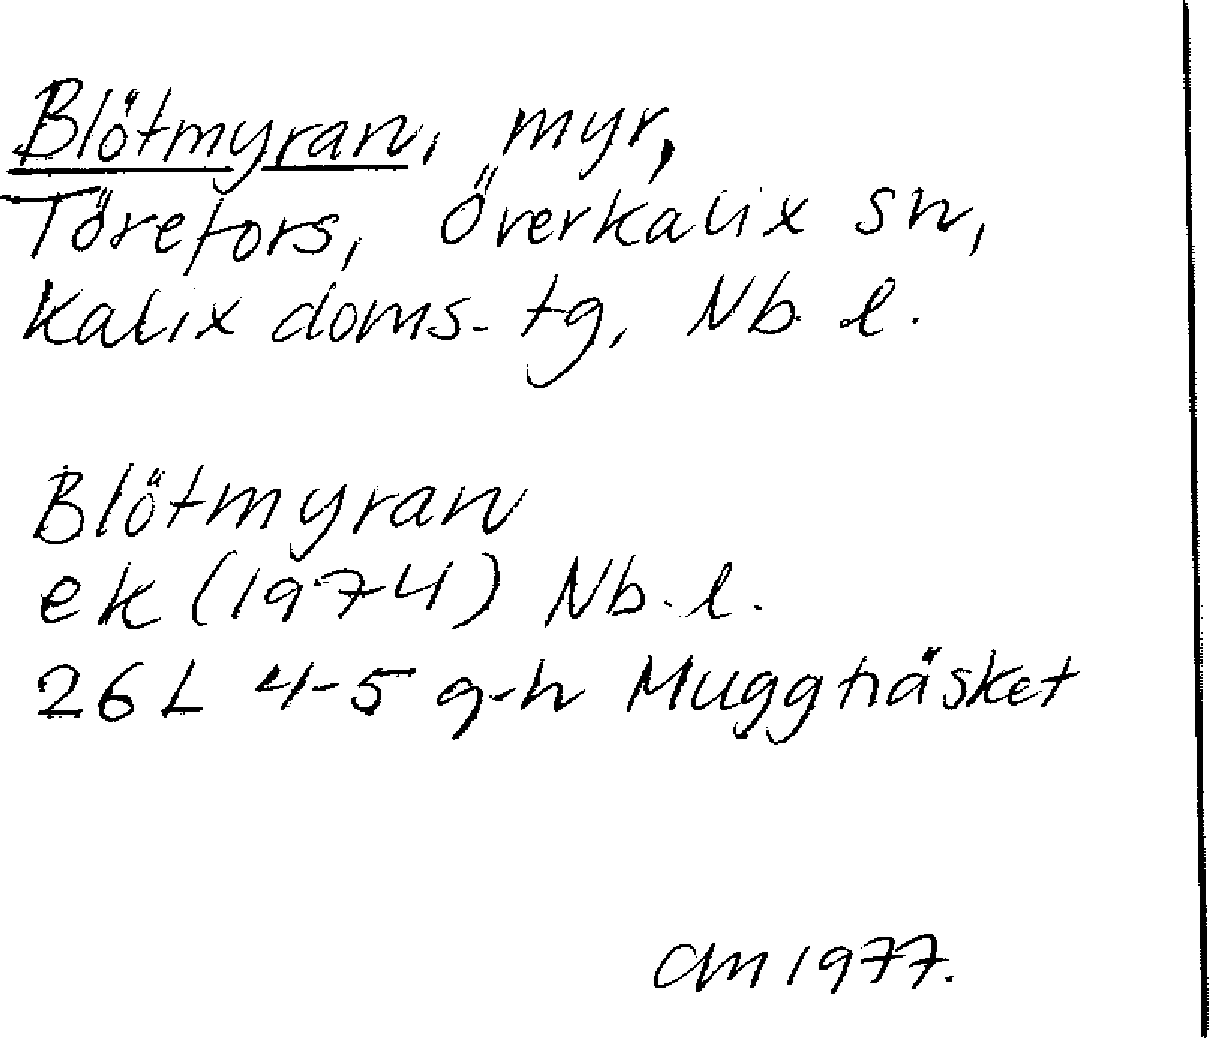 Blötmyran, myr,
Törefors, Överkalix sn,
Kalix doms. tg, Nb l.
Blötmyran
ek (1974) Nb. l.
26 L 4-5 g-h Muggträsket
CM 1977.